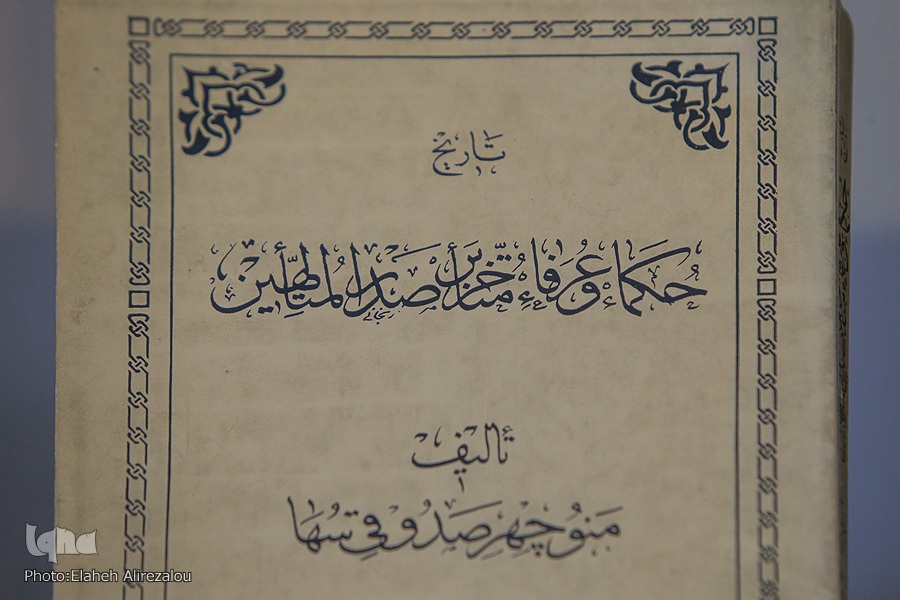 تاریخ
حُکَماءُ وَ عُرَفاءِ مُتَأخّرین بَر صَدرُ المُتَألِّهین
تألیف
مَنوُچِهر صَدُوقی سُها
iqna
Photo:Elaheh Alirezalou